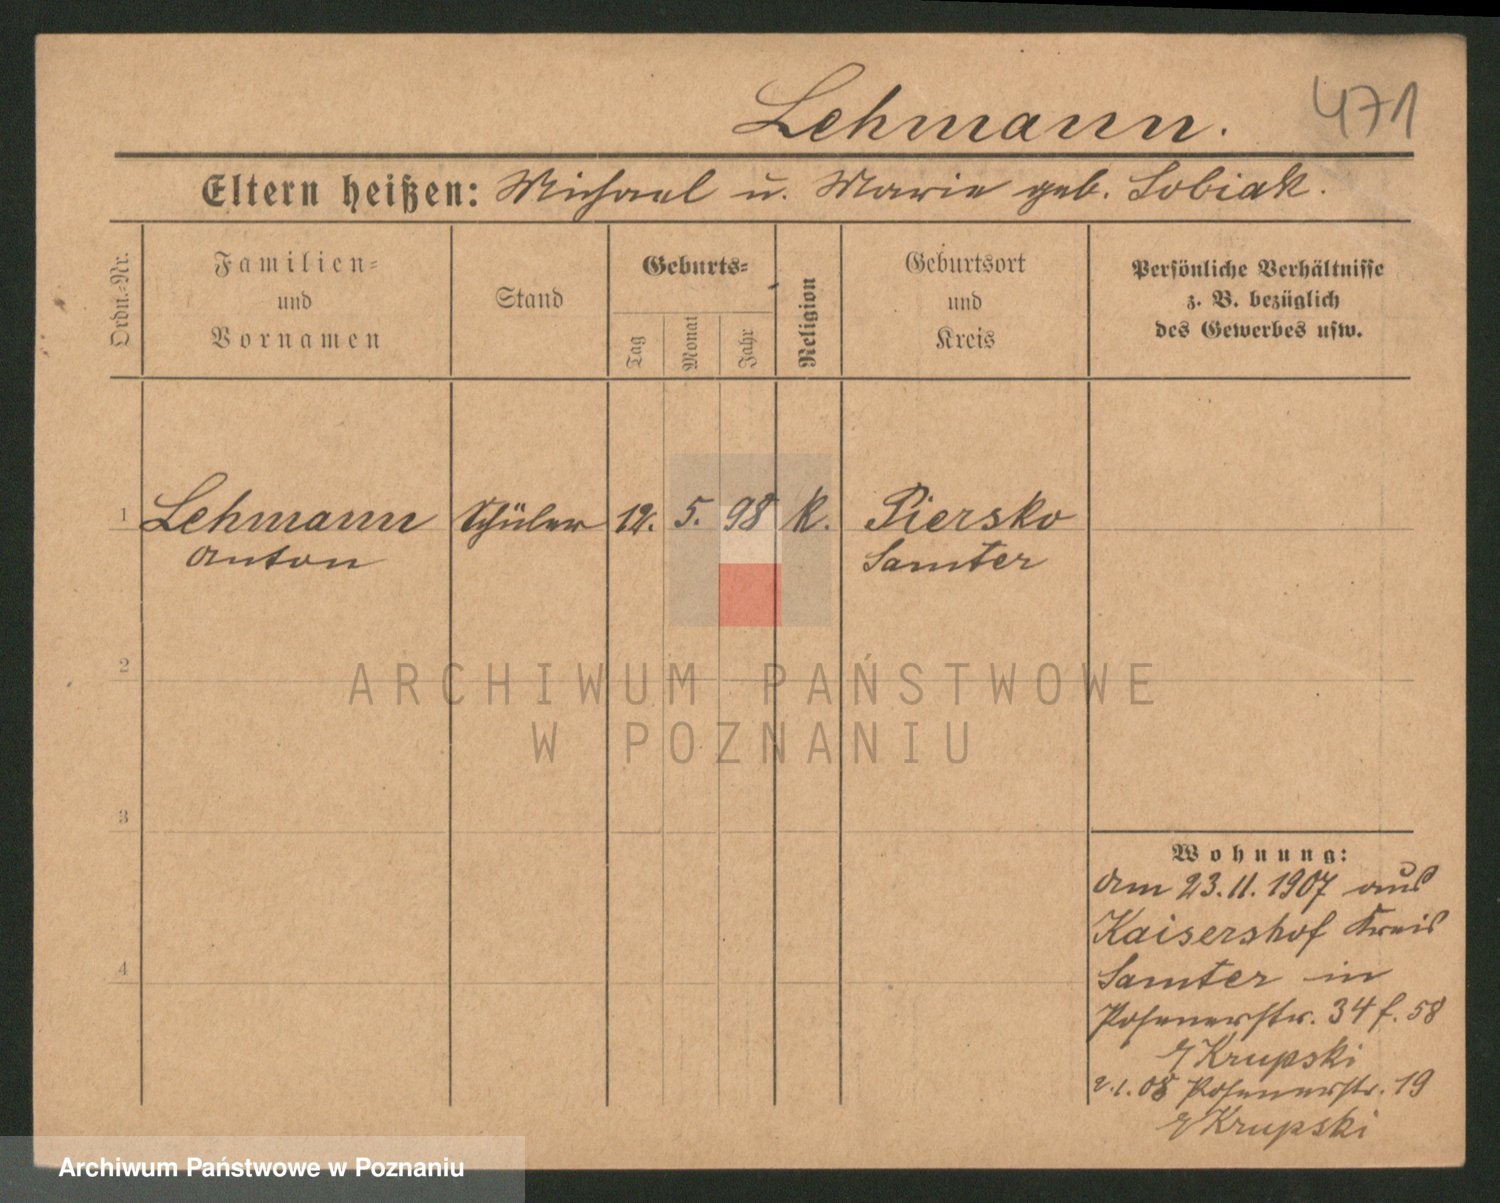 Lehmann. 471
Eltern heißen: Michael u. Marie geb. Sobiak.
Ordn.-Nr.
Familien-
und
Vornamen
Stand
Geburts-
Tag
Monat
Jahr
Religion
Geburtsort
und
Kreis
Persönliche Verhältnisse
z. B. bezüglich
des Gewerbes usw.
1 Lehmann Schüler 12. 5. 98 k. Piersko
Anton Samter
2
3
4
Wohnung:
Am 23.11.1907 aus
Kaisershof Kreis
Samter in
Posenerstr. 34 f. 58
Krupski
2.1.08 Posenerstr. 19
Krupski
ARCHIWUM PAŃSTWOWE
W POZNANIU
Archiwum Państwowe w Poznaniu